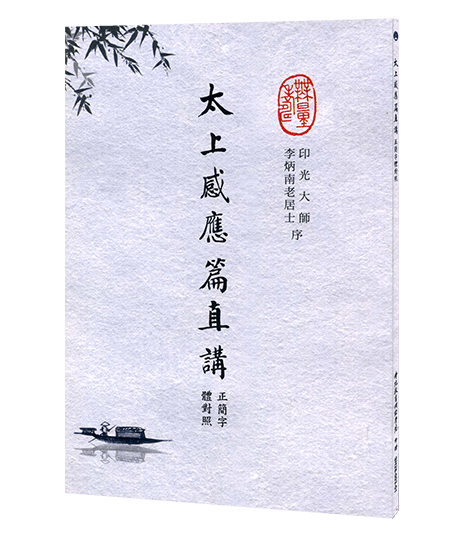 印光大師
李炳南老居士
序
太上感應篇直講
正簡字
體對照
太上感應篇直講 正簡字體對照